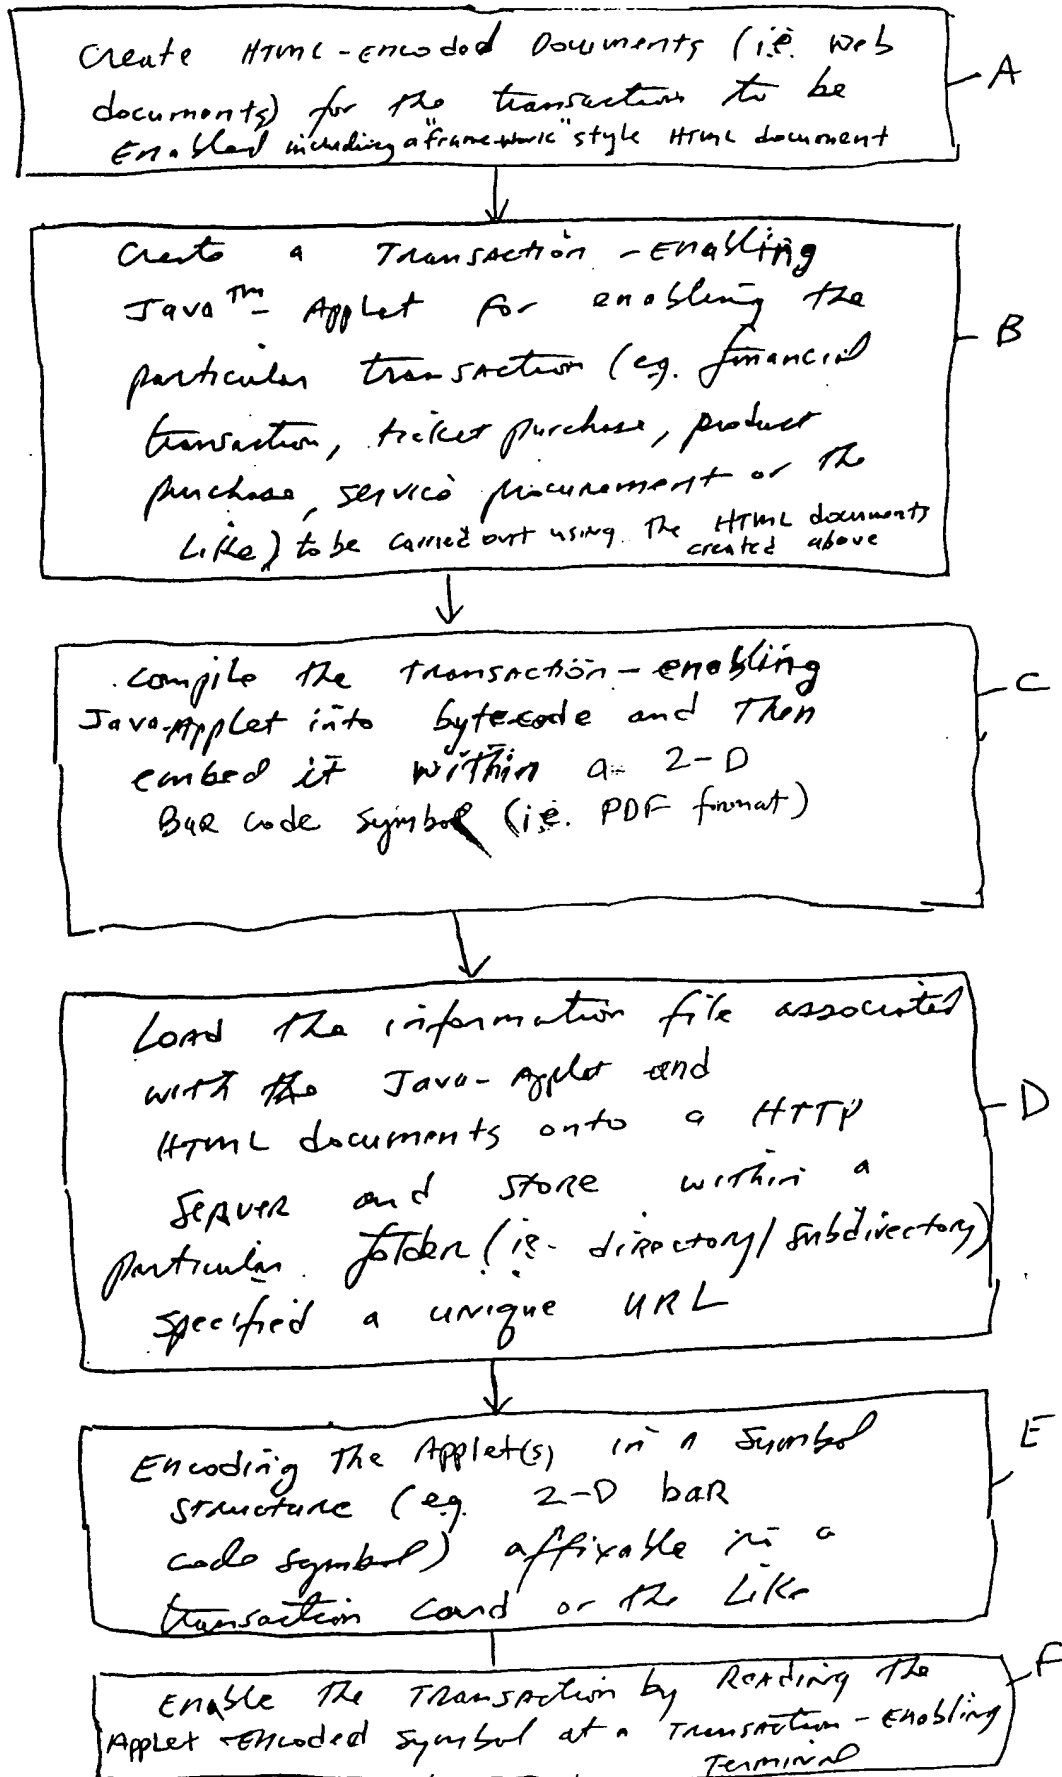 Create HTML-encoded Documents (i.e. Web
documents) for the transaction to be
Enabled including a "framework" style HTML document
A
Create a Transaction-Enabling
Java™-Applet for enabling the
particular transaction (e.g. financial
transaction, ticket purchase, product
purchase, service procurement or the
Like) to be carried out using the HTML documents
created above
B
compile the transaction-enabling
Java-Applet into bytecode and Then
embed it within a 2-D
Bar code symbol (i.e. PDF format)
C
Load the information file associated
with the Java-Applet and
HTML documents onto a HTTP
Server and store within a
particular folder (ie. directory/subdirectory)
specified a unique URL
D
Encoding The Applet(s) in a Symbol
structure (e.g. 2-D bar
code symbol) affixable in a
transaction card or the Like
E
Enable The Transaction by Reading The
Applet-Encoded Symbol at a Transaction-Enabling
Terminal
F